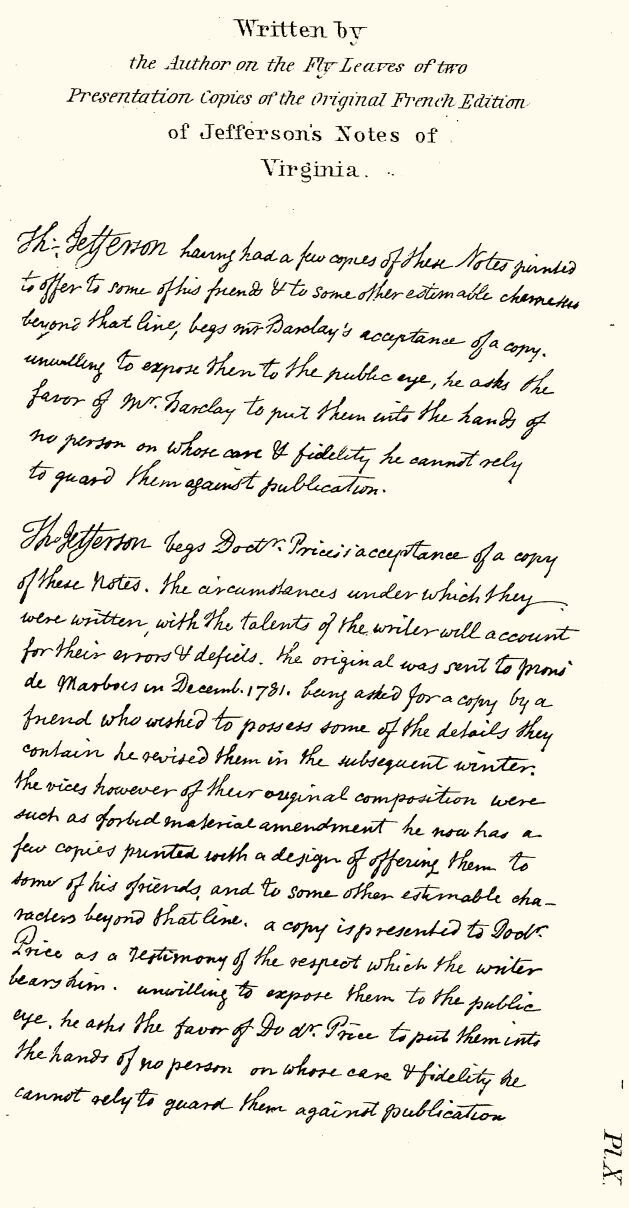 Written by
the Author on the Fly Leaves of two
Presentation Copies of the Original French Edition
of Jefferson's Notes of
Virginia.
Th: Jefferson having had a few copies of these Notes printed
to offer to some of his friends & to some other estimable characters
beyond that line, begs mr Barclay's acceptance of a copy.
unwilling to expose them to the public eye, he asks the
favor of Mr. Barclay to put them into the hands of
no person on whose care & fidelity he cannot rely
to guard them against publication.
Th: Jefferson begs Doctr. Price's acceptance of a copy
of these Notes. the circumstances under which they
were written, with the talents of the writer will account
for their errors & defects. the original was sent to Monsr
de Marbois in Decemb. 1781. being asked for a copy by a
friend who wished to possess some of the details they
contain he revised them in the subsequent winter.
the vices however of their original composition were
such as forbid material amendment he now has a
few copies printed with a design of offering them to
some of his friends, and to some other estimable cha-
racters beyond that line. a copy is presented to Doctr.
Price as a testimony of the respect which the writer
bears him. unwilling to expose them to the public
eye. he asks the favor of Doctr. Price to put them into
the hands of no person on whose care & fidelity he
cannot rely to guard them against publication
Pl.X.